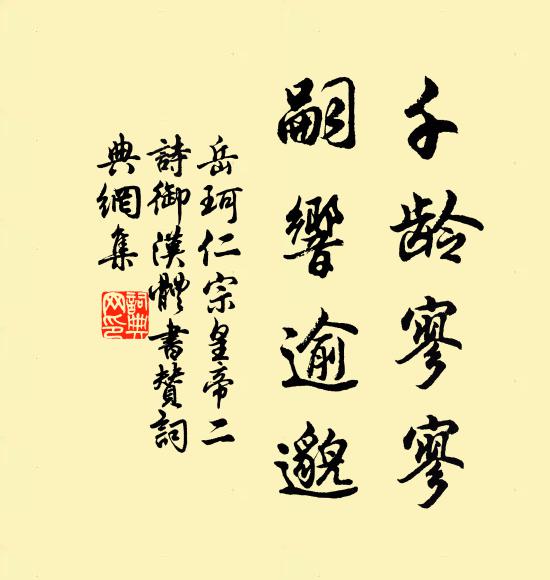 千龄寥寥
嗣響逾邈
岳珂仁宗皇帝二
詩御漢體書贊詞
典網集
詞典
网印